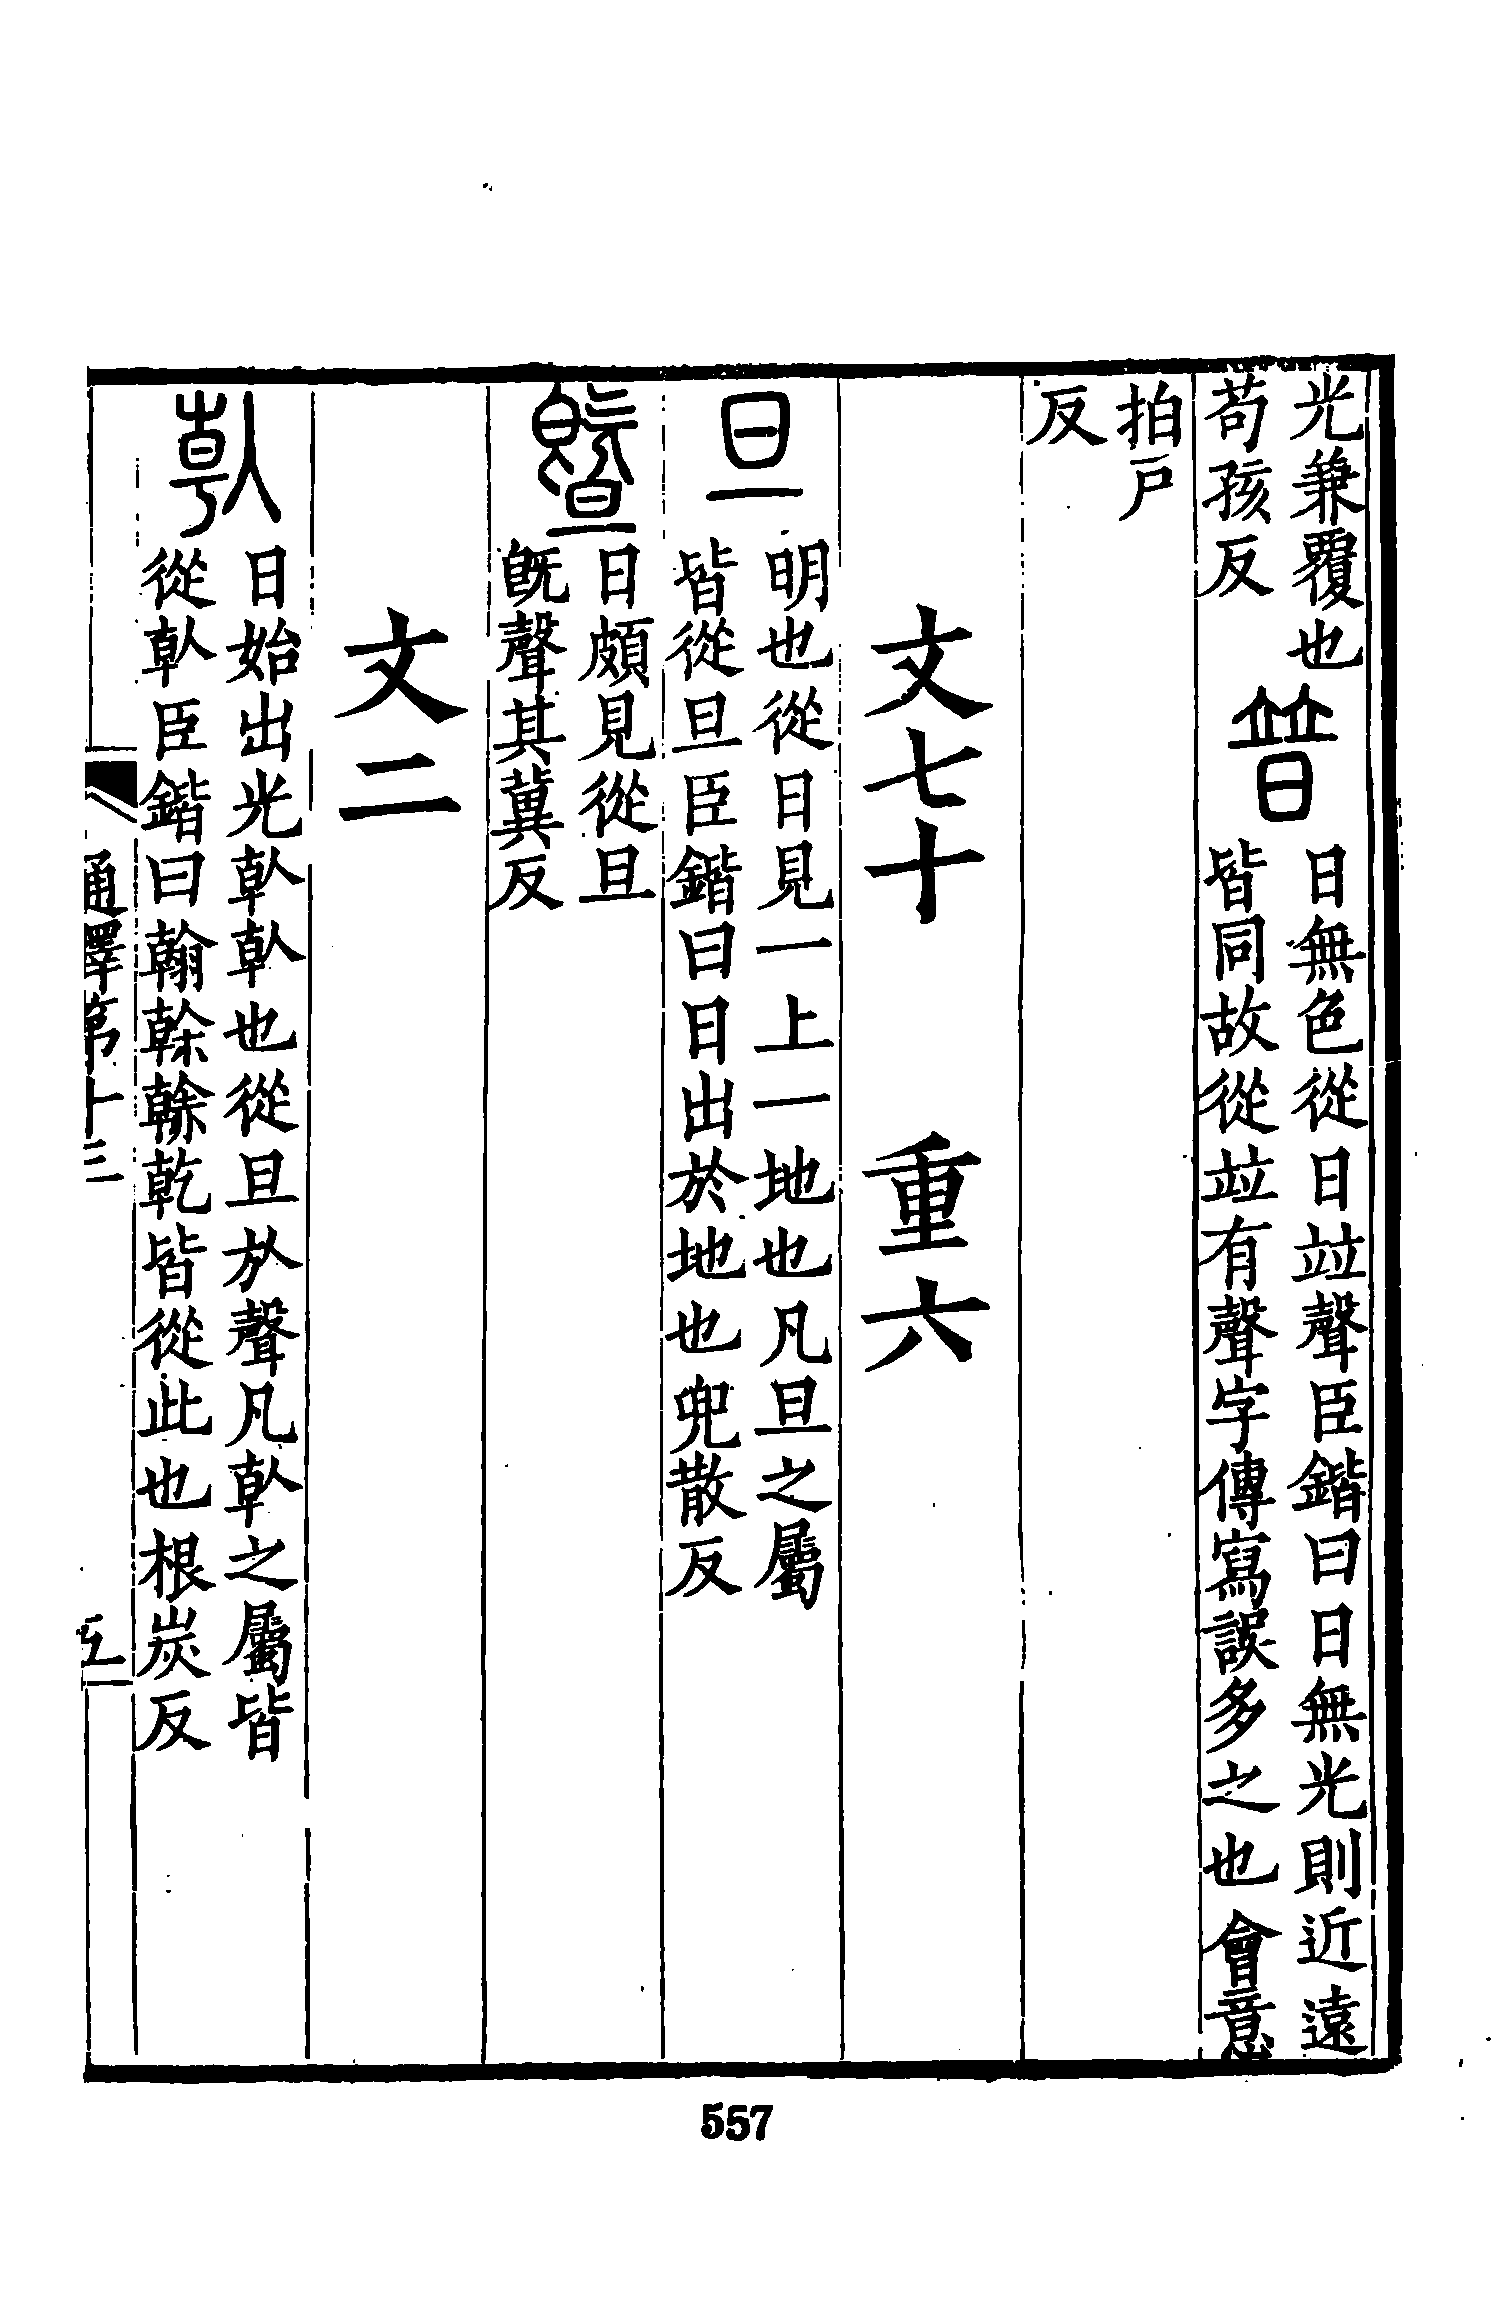 光兼覆也
茍孩反
暜
日無色從日竝聲臣鍇曰日無光則近遠
皆同故從竝有聲字傳寫誤多之也會意
拍戶
反
文七十 重六
旦
明也從日見一上一地也凡旦之屬
皆從旦臣鍇曰日出於地也兜散反
暨
日頗見從旦
旣聲其冀反
文二
倝
日始出光倝倝也從旦㫃聲凡倝之屬皆
從倝臣鍇曰翰榦𠏉乾皆從此也根炭反
通釋第十三
五
557